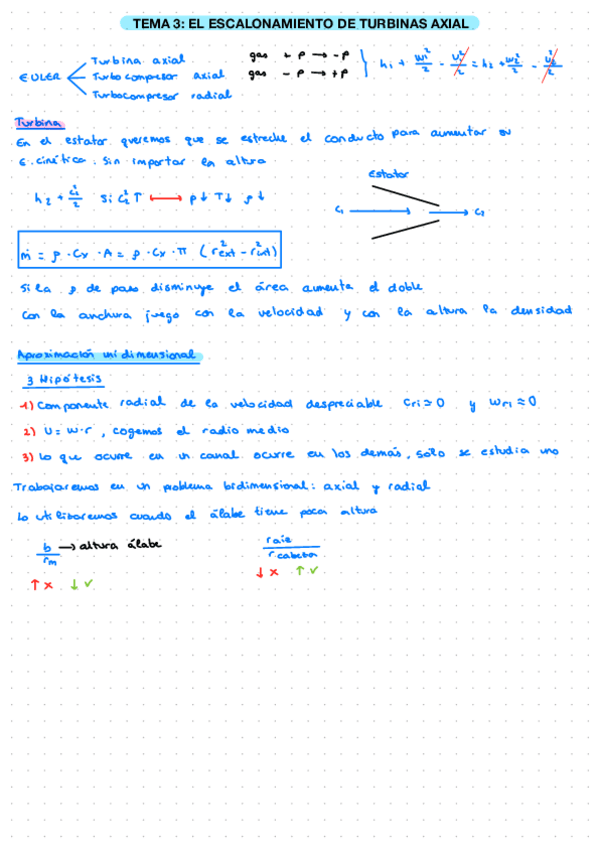 TEMA 3: EL ESCALONAMIENTO DE TURBINAS AXIAL
Turbina axial
EULER Turbocompresor axial
Turbocompresor radial
gas + P → - P
gas - P → + P
h₁ + w₁²/2 - u₁²/2 = h₂ + w₂²/2 - u₂²/2
Turbina
En el estator queremos que se estreche el conducto para aumentar su
E. cinética. Sin importar en altura
h₂ + c₂²/2 si C₂² ↑ ⟷ p↓ T↓ ρ↓
Estator
C₁ → → C₂
ṁ = ρ · Cx · A = ρ · Cx · π (r²ext - r²int)
Si la ρ de paso disminuye el área aumenta el doble
Con la anchura juego con la velocidad y con la altura la densidad
Aproximación unidimensional
3 Hipótesis
1) Componente radial de la velocidad despreciable Cri ≈ 0 y Wri ≈ 0
2) U = w·r, cogemos el radio medio
3) Lo que ocurre en un canal ocurre en los demás, solo se estudia uno
Trabajaremos en un problema bidimensional: axial y radial
Lo utilizaremos cuando el álabe tiene poca altura
b/rm → altura álabe
↑ x ↓ ✓
r raíz / r cabeza
↓ x ↑ ✓